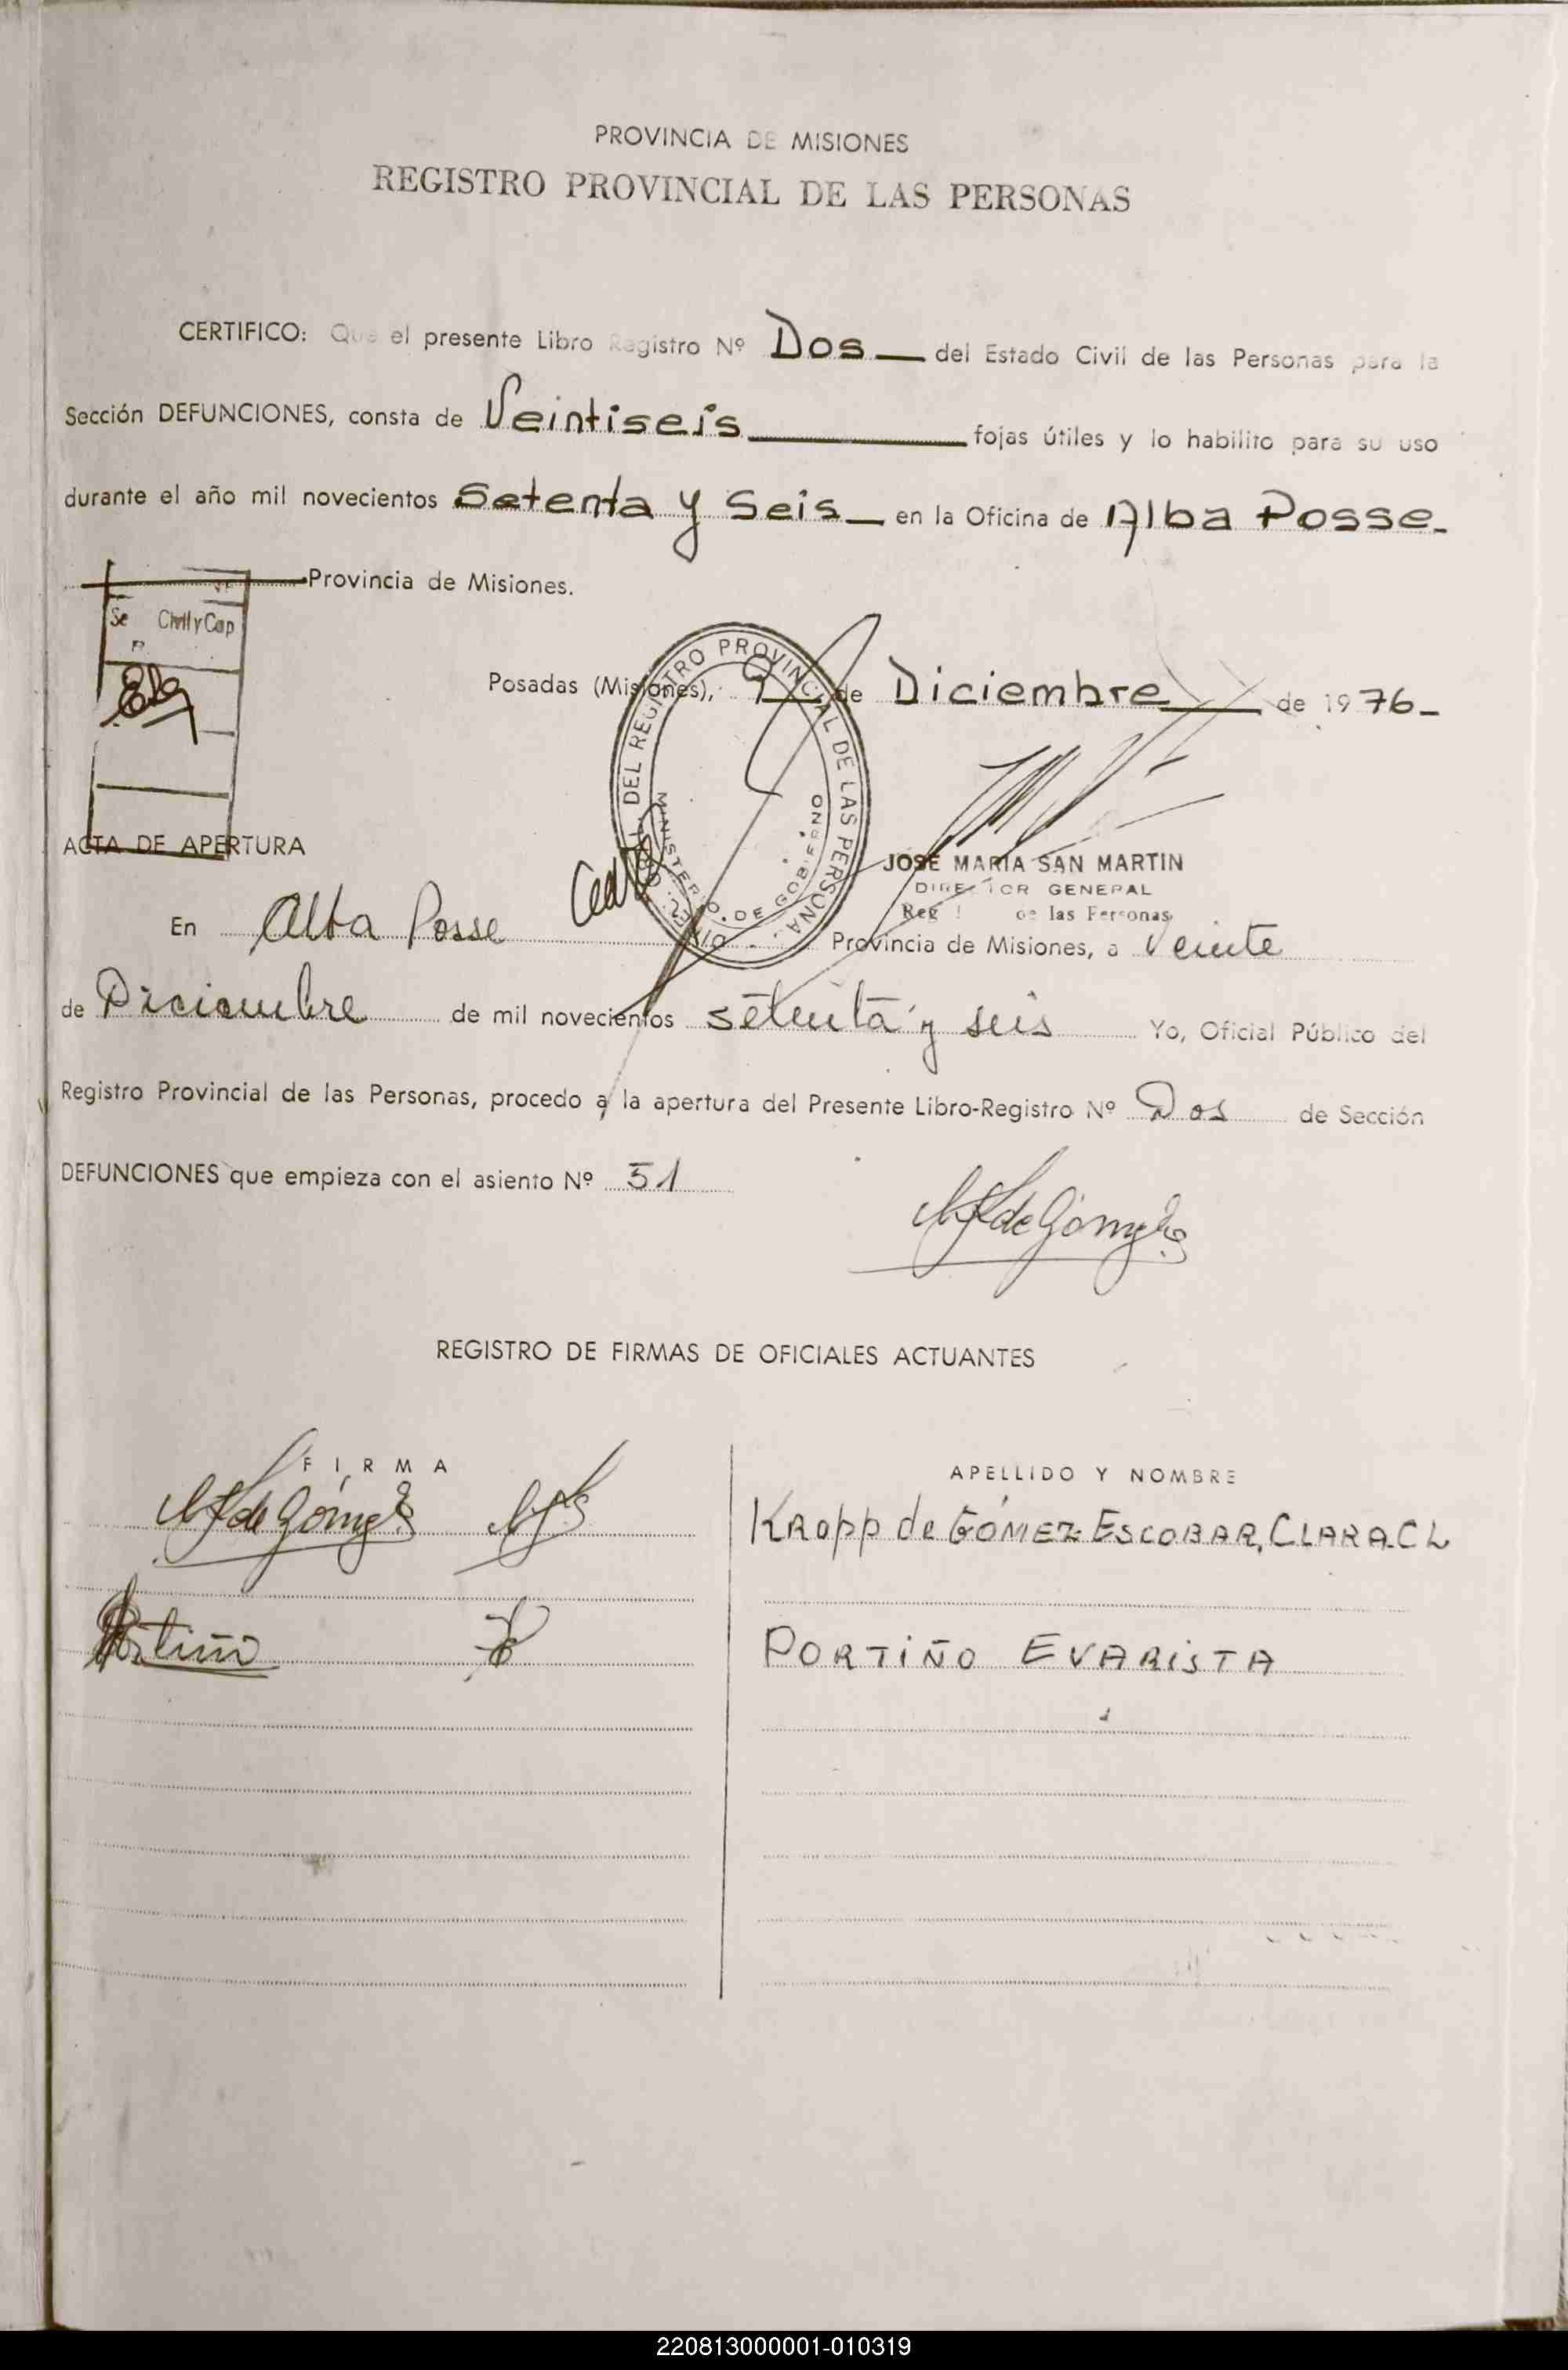 PROVINCIA DE MISIONES
REGISTRO PROVINCIAL DE LAS PERSONAS
CERTIFICO: Que el presente Libro Registro Nº Dos del Estado Civil de las Personas para la
Sección DEFUNCIONES, consta de Veintiseis fojas útiles y lo habilito para su uso
durante el año mil novecientos Setenta y Seis en la Oficina de Alba Posse
Provincia de Misiones.
Se Civil y Cap
Posadas (Misiones), 9 de Diciembre de 1976
DEL REGISTRO PROVINCIAL DE LAS PERSONAS
MINISTERIO DE GOBIERNO
JOSE MARIA SAN MARTIN
DIRECTOR GENERAL
Reg de las Personas
ACTA DE APERTURA
En Alba Posse Provincia de Misiones, a Veinte
de Diciembre de mil novecientos setenta y seis Yo, Oficial Público del
Registro Provincial de las Personas, procedo a la apertura del Presente Libro-Registro Nº Dos de Sección
DEFUNCIONES que empieza con el asiento Nº 51
de Gómez
REGISTRO DE FIRMAS DE OFICIALES ACTUANTES
FIRMA APELLIDO Y NOMBRE
de Gómez KRapp de GÓMEZ ESCOBAR, CLARA CL
Portiño PORTIÑO EVARISTA
220813000001-010319